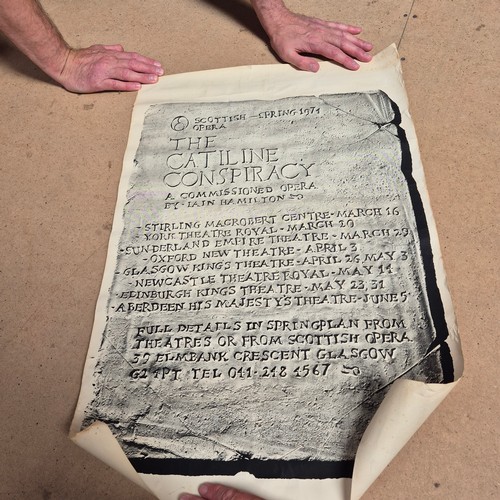 SCOTTISH - SPRING 1974
OPERA
THE
CATILINE
CONSPIRACY
A COMMISSIONED OPERA
BY · IAIN HAMILTON
- STIRLING MACROBERT CENTRE - MARCH 16
YORK THEATRE ROYAL - MARCH 20
- SUNDERLAND EMPIRE THEATRE - MARCH 29
- OXFORD NEW THEATRE - APRIL 3
GLASGOW KINGS THEATRE - APRIL 26, MAY 3
- NEWCASTLE THEATRE ROYAL - MAY 14
EDINBURGH KINGS THEATRE - MAY 23, 31
- ABERDEEN HIS MAJESTY'S THEATRE - JUNE 5
FULL DETAILS IN SPRINGPLAN FROM
THEATRES OR FROM SCOTTISH OPERA
39 ELMBANK CRESCENT GLASGOW
G2 4PT TEL 041-248 4567